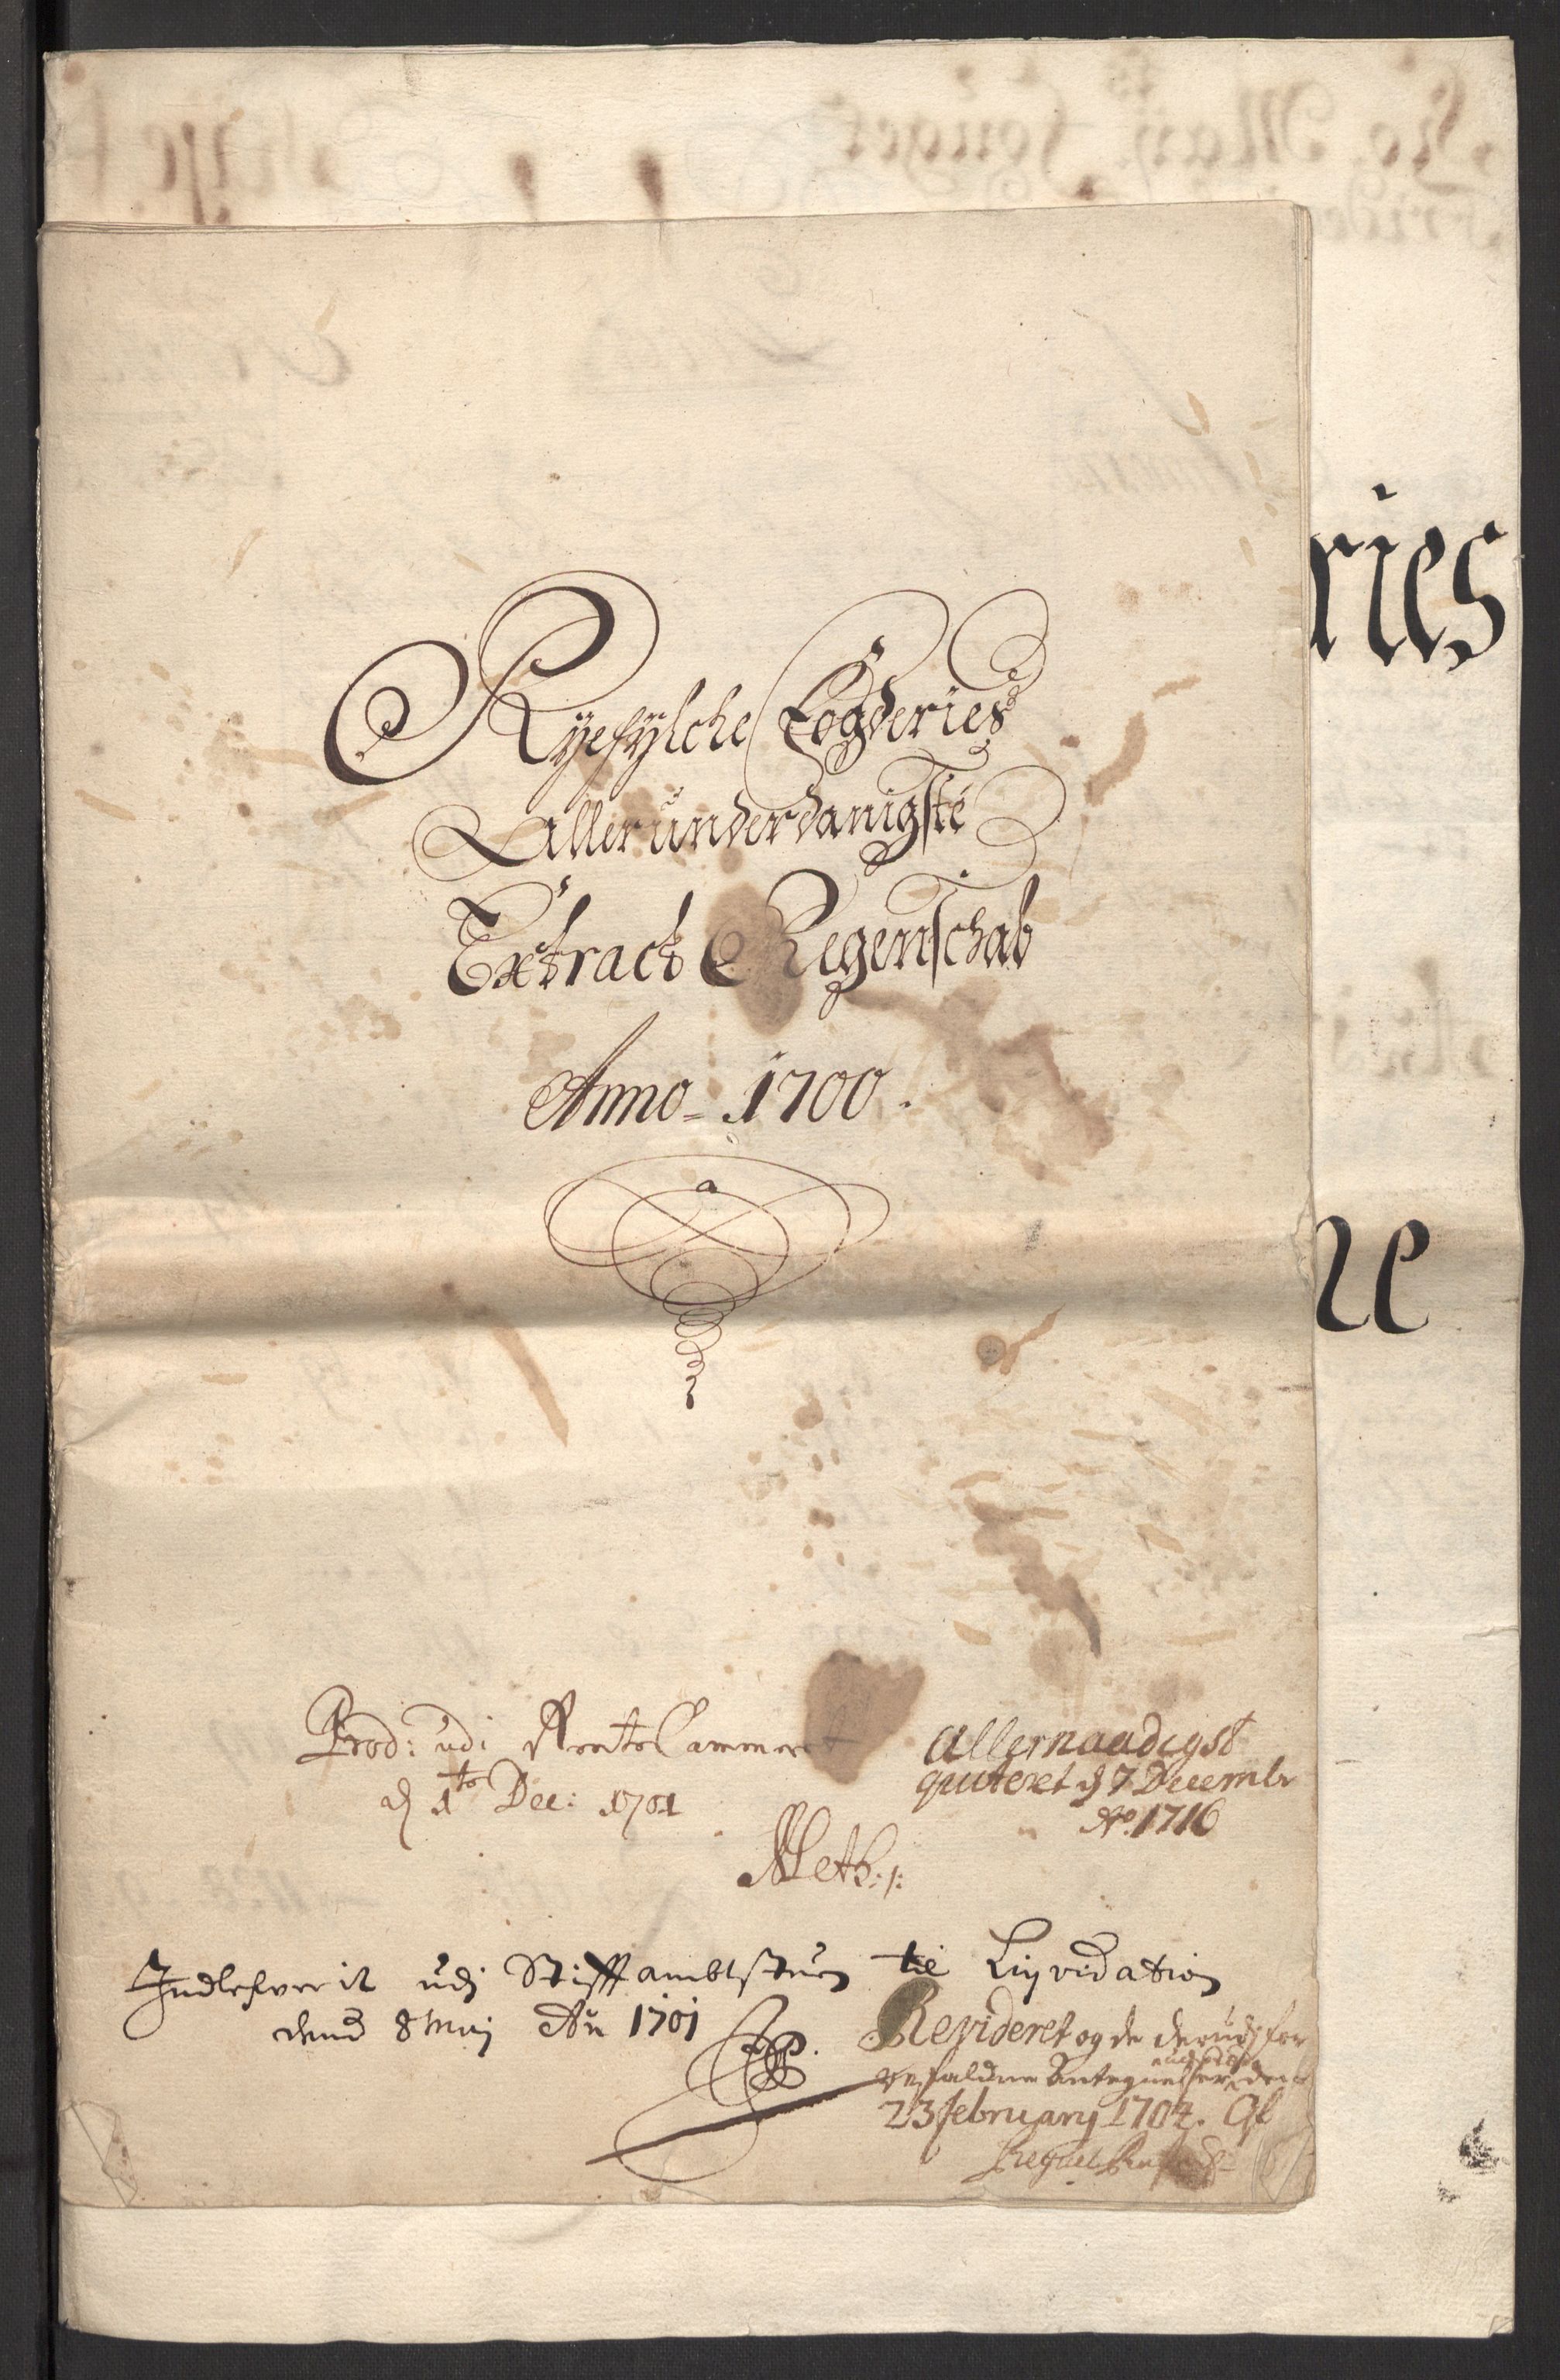 Ryefylche Fogderies
allerunderdanigste
Extract Regenschab
Anno - 1700.
Prod: udi RenteCammeret
d 1te Dec: 1701
Allernaadigst
quiteret d 7 Decembr
Ao. 1716
Meth:/:
Indlefverit udj Stifftambtstuen til Liqvidation
dend 8 Maj An 1701
Revideret og de derudj for
refaldne Antegnelser den
23 february 1704.
ries
ne